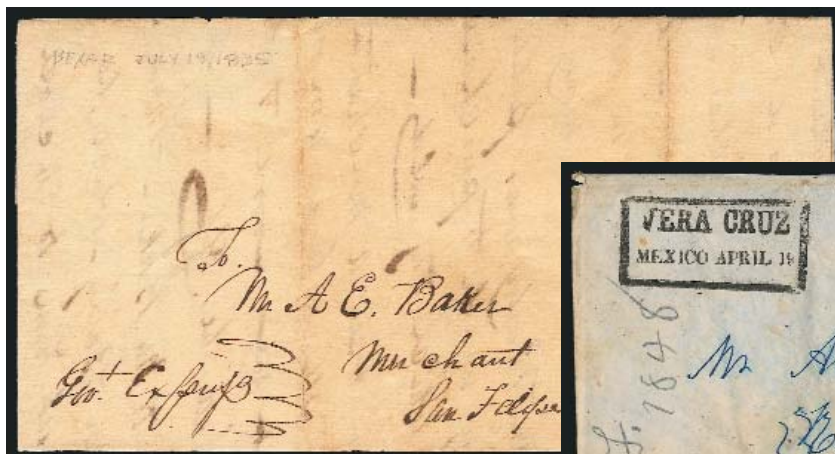 BEXAR JULY 19/1835
To.
Mr A E. Baker
Merchant
San Felipe
Govt Express
VERA CRUZ
MEXICO APRIL 19
1848
Mr A